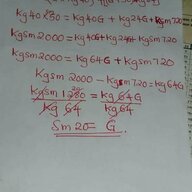 kg40x80 = kg40G + kg24G + kgsm720
kgsm2000 = kg40G + kg24G + kgsm720
kgsm2000 = kg64G + kgsm720
kgsm2000 - kgsm720 = kg64G
kgsm1280 = kg64G
kg64 kg64
20
Sm20 = G.